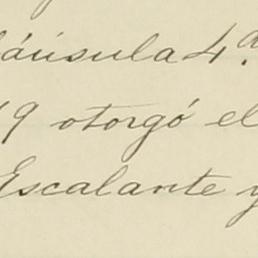 láusula 4.a
19 otorgó el
Escalante y